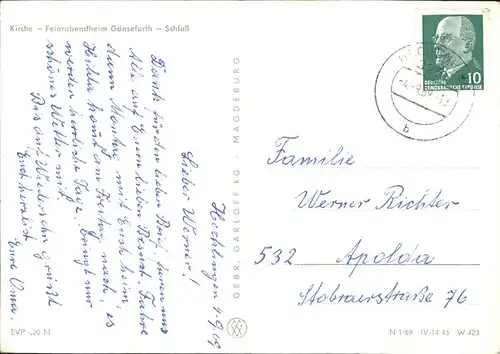 Kirche – Feierabendheim Gänsefurth – Schloß
Hecklingen 4.9.69
Lieber Werner!
Dank für den lieben Brief, freuen uns
Alle auf Euren lieben Besuch. Fahre
dann Montag mit Euch heim,
Hilda kommt am Freitag nach, es
werden herrliche Tage, bringt nur
schönes Wetter mit.
Bis auf Wiedersehn grüßt
Euch herzlichst
Eure Oma.
GEBR. GARLOFF KG. - MAGDEBURG
DEUTSCHE
DEMOKRATISCHE REPUBLIK
10
b
Familie
Werner Richter
532 Apolda
Stobraerstraße 76
EVP -,20 M
N 1/69 IV-14-45 W 423